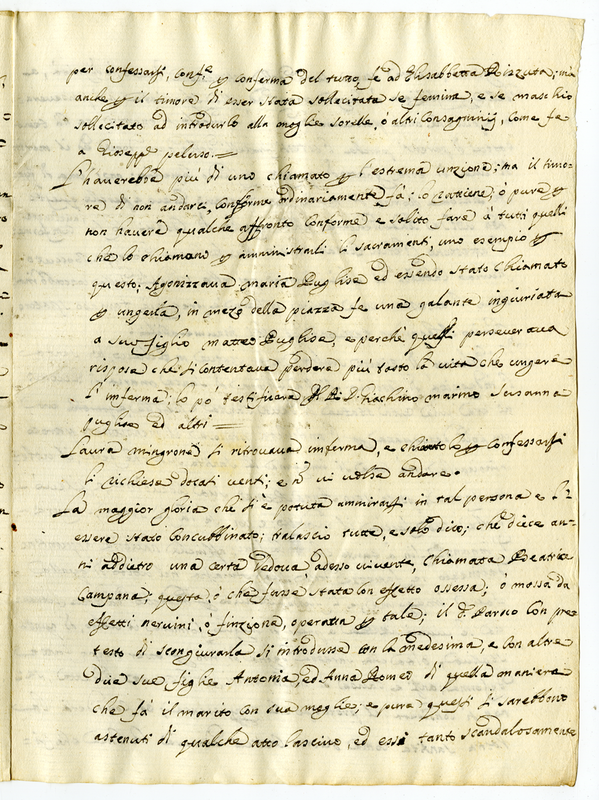 per confessarsi, conf.e p conferma del tutto, fe ad Elisabbetta Rizzuta; mà
anche p il timore di esser stata sollecitata se femina, e se maschio
sollecitato ad introdurlo alla moglie sorelle, ó altri Consaguinij, come fe
a Gioseppe peluso. =
L'haverebbe piú di uno chiamato p l'estrema unzione; ma il timo-
re di non andarci, conforme ordinariamente fá; lo ó pure p
non havere qualche affronto conforme e solito fare á tutti quelli
che lo chiamano p amministrarli li sacramenti, uno esempio p
questo; Agonizzava maria Puglise ed essendo stato chiamato
p ungerla, in mezo della piazza fe una galante ingiuriata
a suo figlio matteo Puglise, e perche questi perseverava
risposa che si contentava perdere più tosto la vita che ungere
l'inferma; lo pò testificare il R. D. Giachino marino Susanna
puglise ed altri =
Laura mingrone si ritrovava inferma, e chiamatolo p Confessarsi
li richiese docati venti; e n vi volse andare.
La maggior gloria che si è potuta ammirarsi in tal persona e l'
essere stato Concubbinato; tralascio tutte, e solo dico; che diece an-
ni addietro una certa vedova adesso vivente, Chiamata Beatrice
Campana; questa, ó che fusse stata con effetto ossessa; ó mossa da
effetti nervini, ó finzione, operatia p tale; il d. Paroco con pre-
testo di scongiurarla si introdusse con la medesima, e con altre
due sue figlie Antonia, ed Anna Romeo di quella maniera
che fà il marito con sua moglie; e pure questi si sarebbono
astenuti di qualche atto lascivo, ed essi tanto scandalosamente